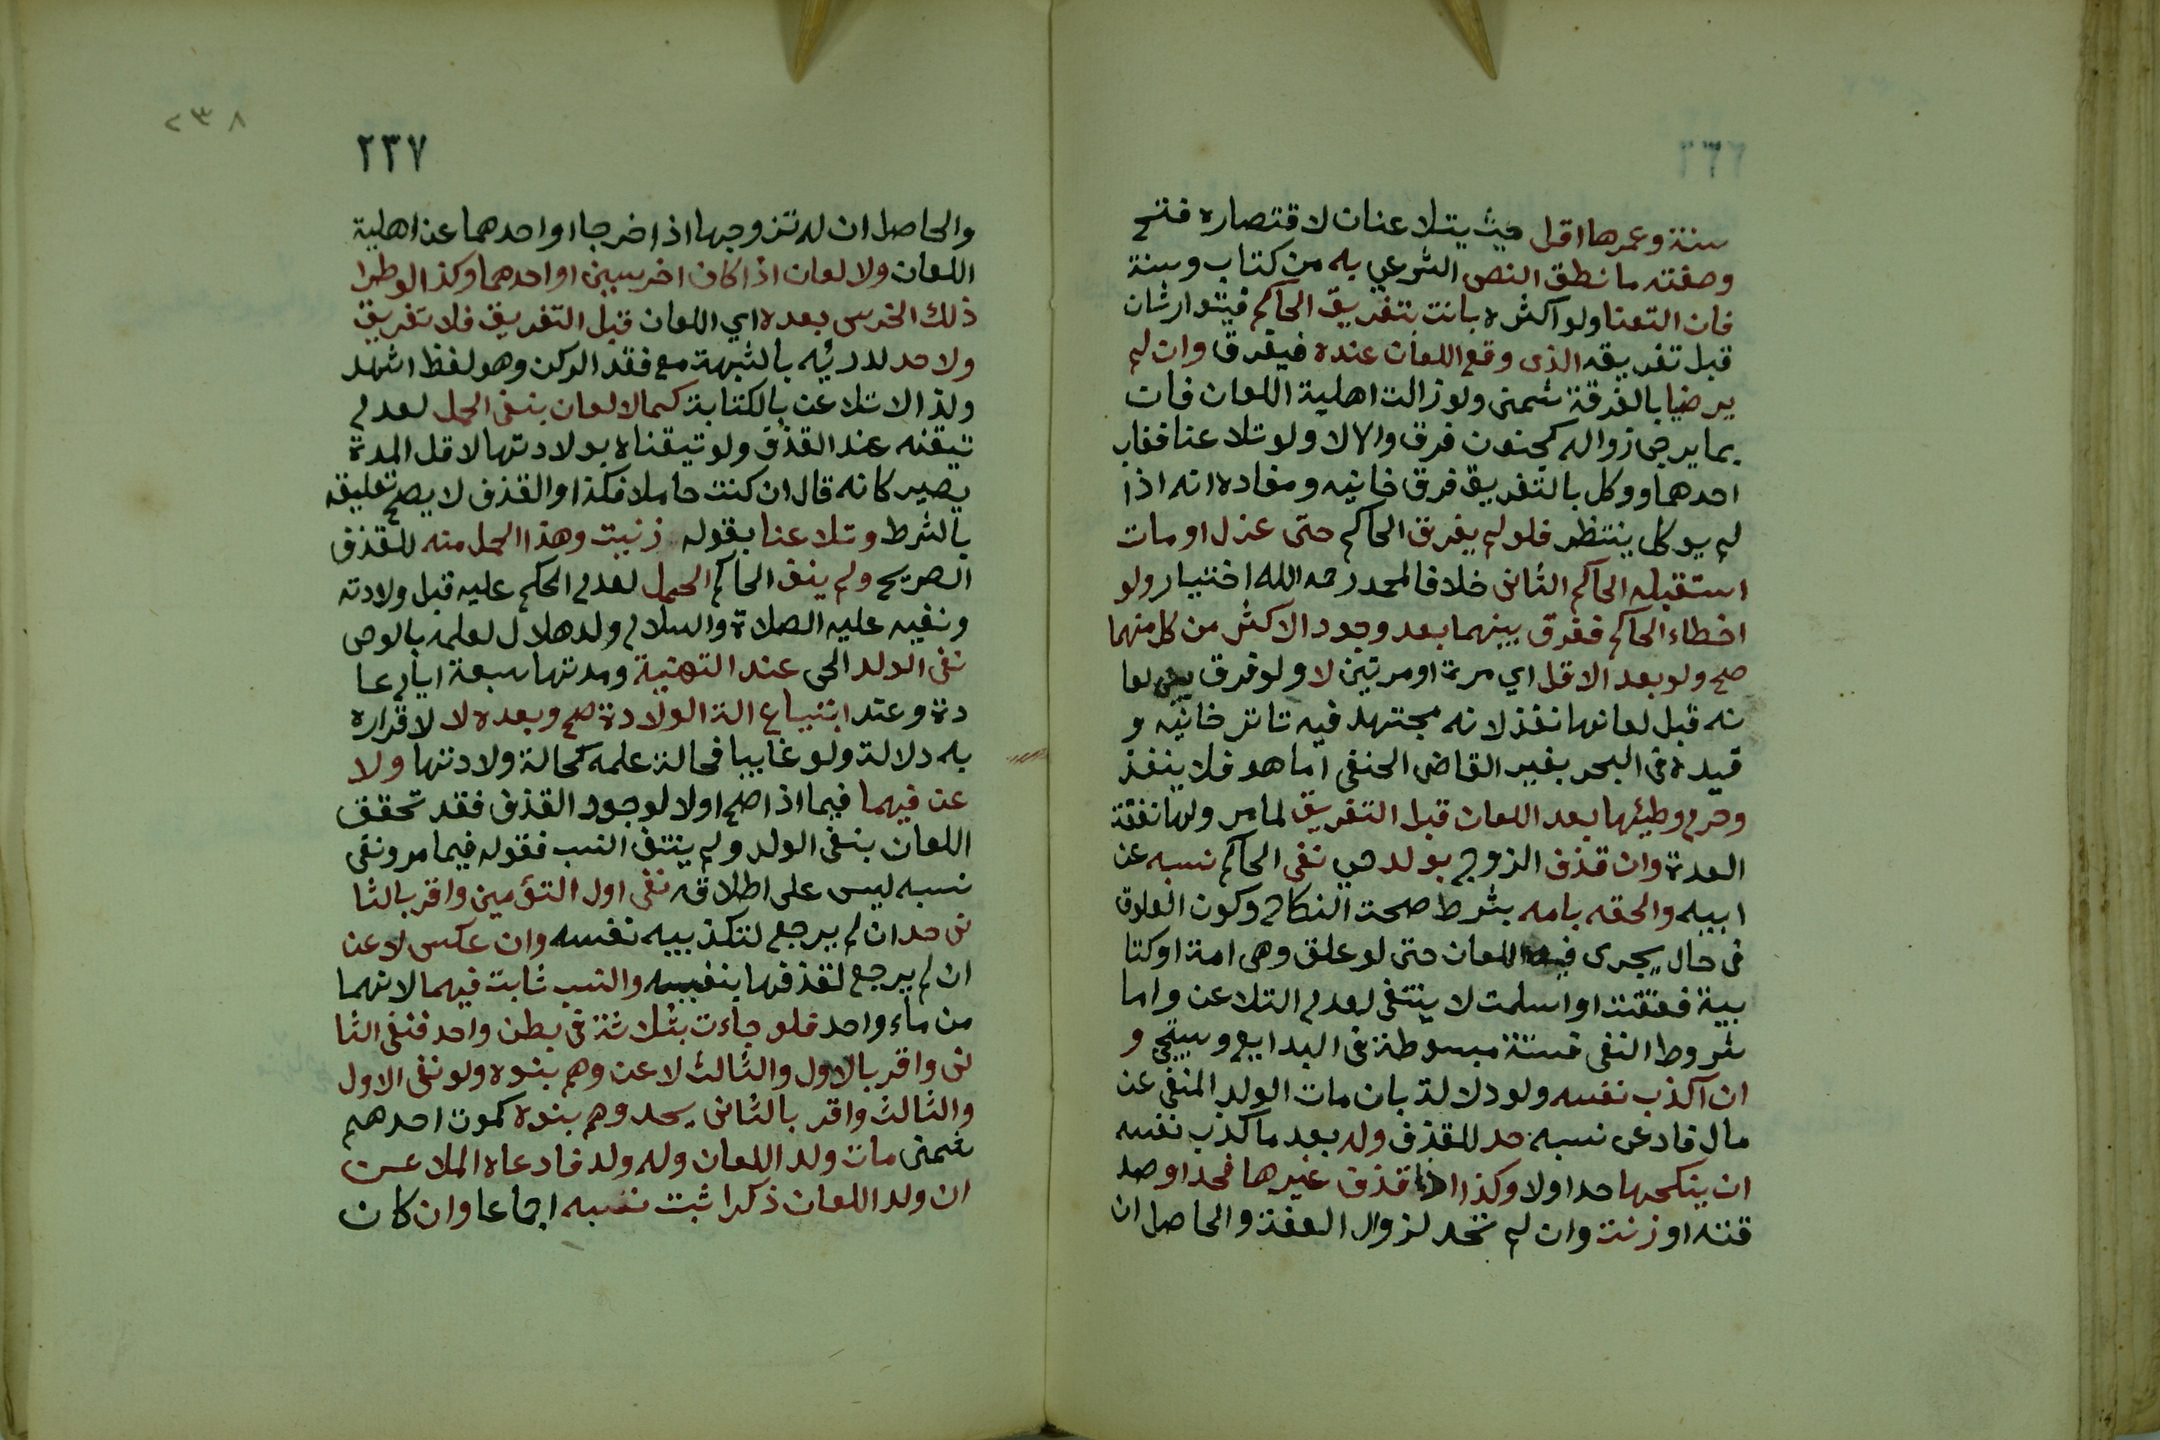 ٢٣٦
سنة وعمرها اقل حيث يتلاعنان لاقتصاره فتح
وصفته ما نطق النص الشرعي به من كتاب وسنة
فان التعنا ولو اكثره بانت بتفريق الحاكم فيتوارثان
قبل تفريقه الذى وقع اللعان عنده فيفرق وان لم
يرضيا بالفرقة شمنى ولو زالت اهلية اللعان فات
بما يرجى زواله كجنون فرق والا لا ولو تلاعنا فغاب
احدهما ووكل بالتفريق فرق خانيه ومفاده انه اذا
لم يوكل ينتظر فلو لم يفرق الحاكم حتى عزل او مات
استقبله الحاكم الثانى خلافا لمحمد رحمه الله اختيار ولو
اخطاء الحاكم ففرق بينهما بعد وجود الاكثر من كل منهما
صح ولو بعد الاقل اي مرة او مرتين لا ولو فرق بعد لعا
نه قبل لعانها نفذ لانه مجتهد فيه تاتر خانيه و
قيده فى البحر بغير القاضى الحنفى اما هو فلا ينفذ
وحرم وطيئها بعد اللعان قبل التفريق لما مر ولها نفقة
العدة وان قذف الزوج بولد حي نفى الحاكم نسبه عن
ابيه والحقه بامه بشرط صحت النكاح وكون العلوق
فى حال يجرى فيه اللعان حتى لو علق وهى امة او كتا
بية فعتقت او اسلمت لا ينتفى لعدم التلاعن واما
شروط النفى فستة مبسوطة فى البدايع وسيجي و
ان اكذب نفسه ولو دلالة بان مات الولد المنفى عن
مال فادعى نسبه حد للقذف وله بعد ما كذب نفسه
ان ينكحها حد اولا وكذا اذا قذف غيرها فحد او صد
قته او زنت وان لم تحد لزوال العفة والحاصل ان
٢٣٨
٢٣٧
والحاصل ان له تزوجها اذا خرجا او احدهما عن اهلية
اللعان ولا لعان اذا كان اخرسين او احدهما وكذا لو طرا
ذلك الخرس بعده اي اللعان قبل التفريق فلا تفريق
ولا حد لدرئه بالشبهة مع فقد الركن وهو لفظ اشهد
ولذا لا تلاعن بالكتابة كما لا لعان بنفى الحمل لعدم
تيقنه عند القذف ولو تيقناه بولادتها لاقل المدة
يصير كانه قال ان كنت حاملا فكذا والقذف لا يصح تعليقه
بالشرط وتلاعنا بقوله زنيت وهذا الحمل منه للقذف
الصريح ولم ينف الحاكم الحمل لعدم الحكم عليه قبل ولادته
ونفيه عليه الصلاة والسلام ولد هلال لعلمه بالوحى
نفى الولد الحى عند التهنية ومدتها سبعة ايام عا
دة وعند ابتياع الة الولادة صح وبعده لا لاقراره
به دلالة ولو غايبا فحالة علمه كحالة ولادتها ولا
عن فيهما فيما اذا صح اولا لوجود القذف فقد تحقق
اللعان بنفى الولد ولم ينتف النسب فقوله فيما مر ونفى
نسبه ليس على اطلاقه نفى اول التؤمين واقر بالثا
نى حد ان لم يرجع لتكذيبه نفسه وان عكس لاعن
ان لم يرجع لقذفها بنفييه والنسب ثابت فيهما لانهما
من ماء واحد فلو جاءت بثلاثة فى بطن واحد فنفى الثا
نى واقر بالاول والثالث لاعن وهم بنوه ولو نفى الاول
والثالث واقر بالثانى يحد وهم بنوه كموت احدهم
شمنى مات ولد اللعان وله ولد فادعاه الملاعن
ان ولد اللعان ذكرا ثبت نسبه اجماعا وان كان